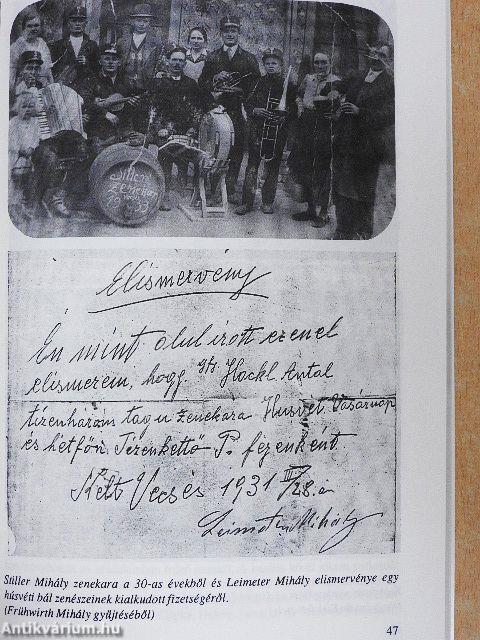 Stiller
zenekara
1933
Elismervény
Én mint alul irott ezenel
elismerem, hogy Hackl Antal
tizenhárom tagu zenekara Husvét Vasárnap
és hétfőn Tizenkettő P. fejenként
Kelt Vecsés 1931 III/28.án
Leimeter Mihály
Stiller Mihály zenekara a 30-as évekből és Leimeter Mihály elismervénye egy
húsvéti bál zenészeinek kialkudott fizetségéről.
(Frühwirth Mihály gyűjtéséből)
47
Antikvárium.hu